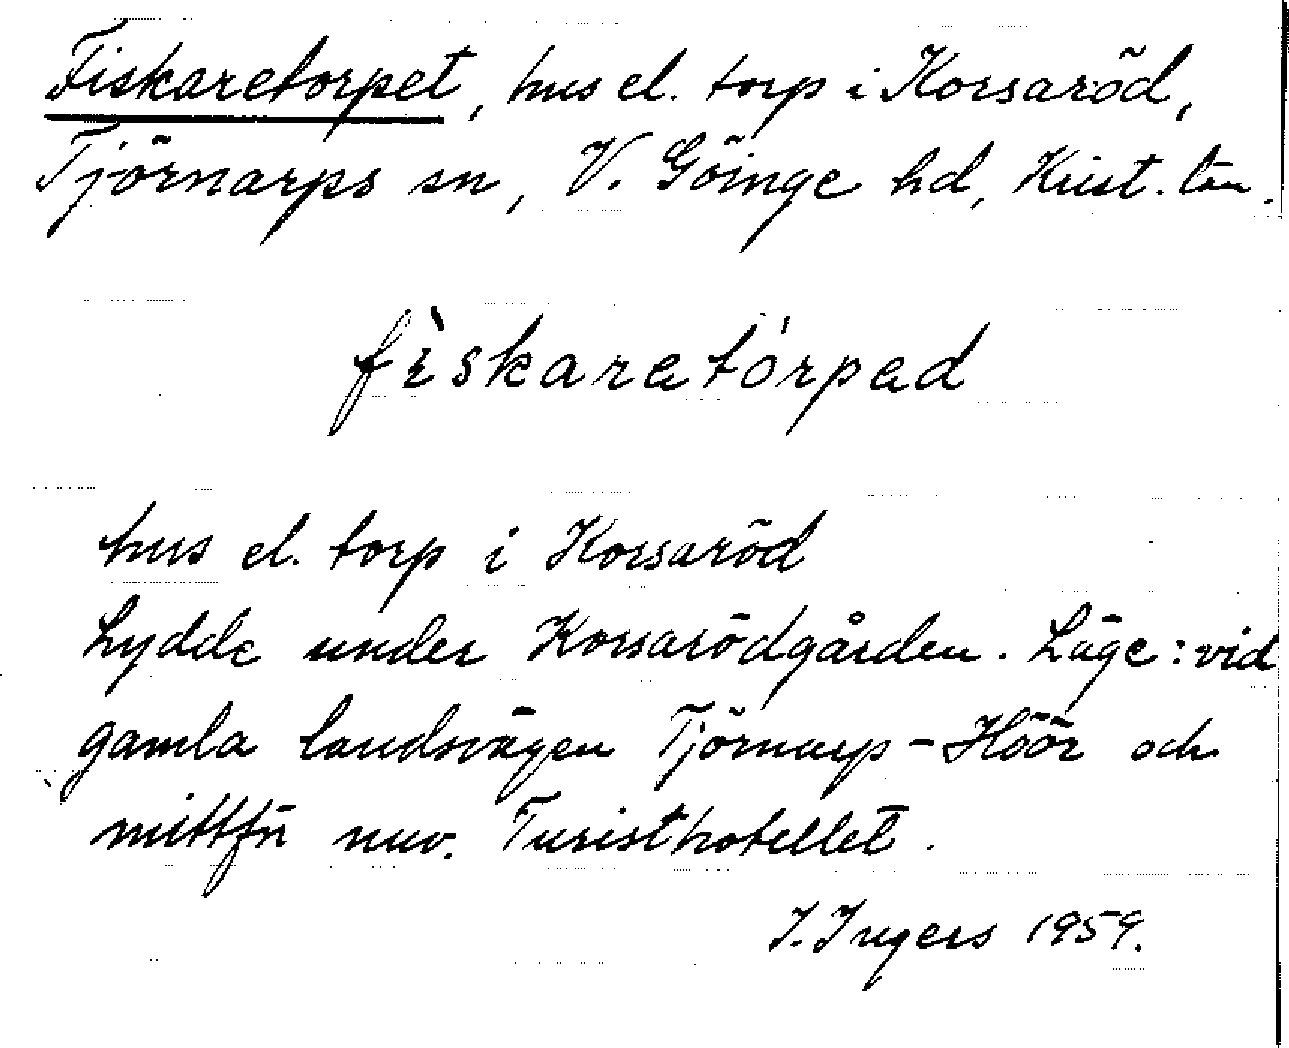 Fiskaretorpet, hus el. torp i Korsaröd,
Tjörnarps sn, V. Göinge hd, Krist. län.
fìskaretórpad
hus el. torp i Korsaröd
Lydde under Korsarödgården. Läge: vid
gamla landsvägen Tjörnarp-Höör och
mittför nuv. Turisthotellet.
I. Ingers 1959.